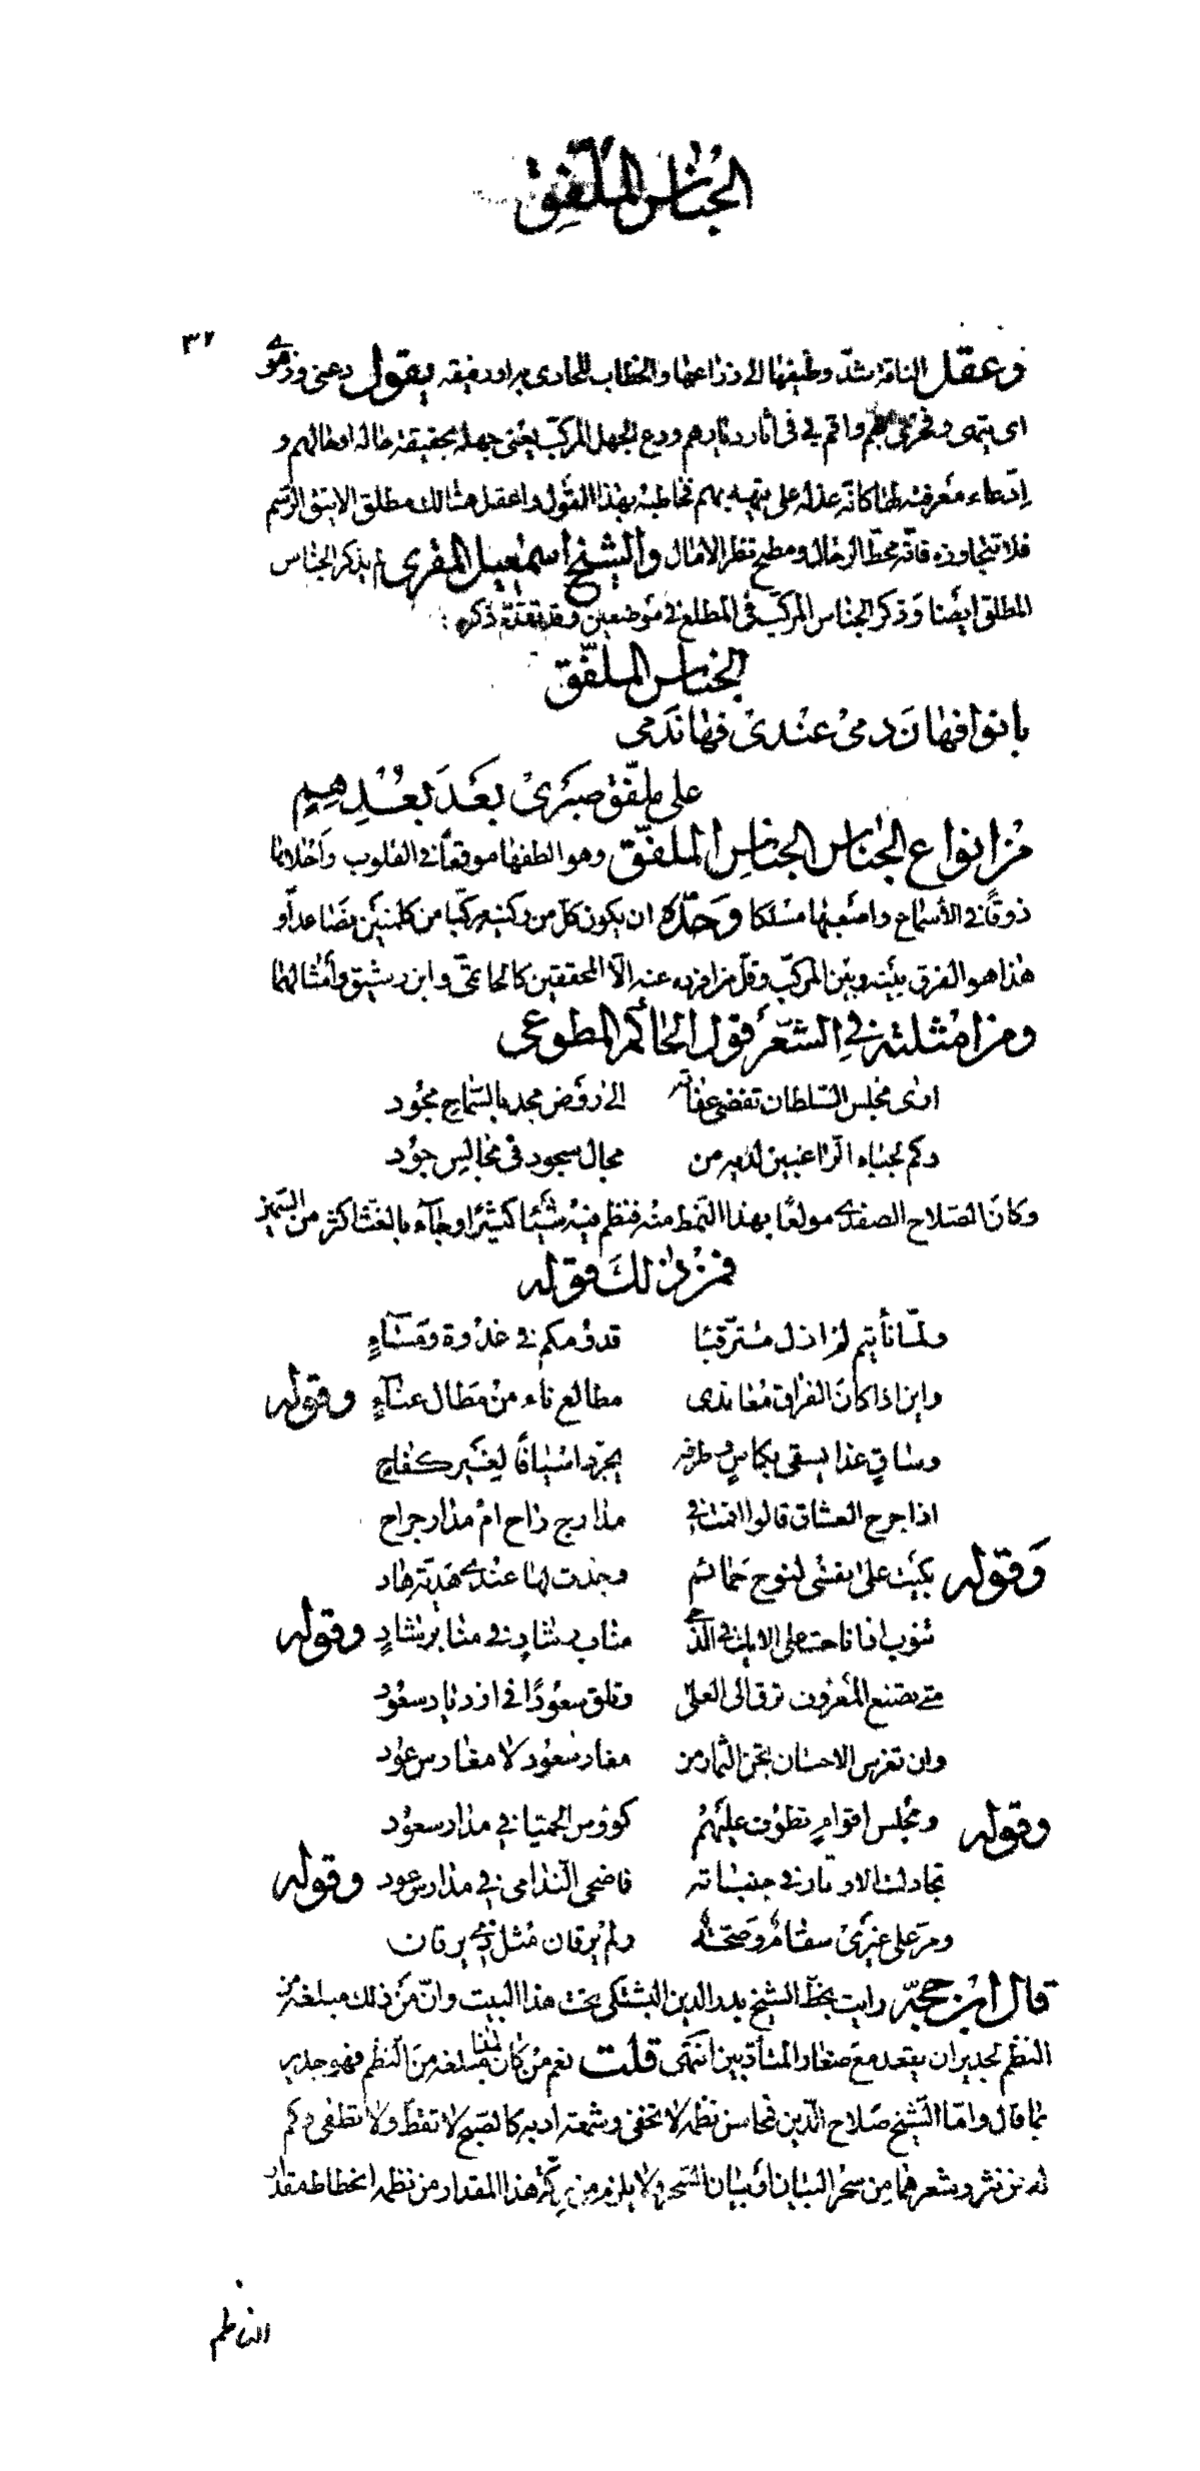 الجناس الملفق
٣٢
وعقل الناقة شدّ وظيفها الى ذراعها والخطاب للحادى به او رفيقه يقول دعنى وذمّى
اى بهم واقم لى فى اثار ديارهم ودع الجهل المركّب يعنى جهله بحقيقة حاله او حالهم و
ادّعاء معرفته لها كانّه عذله على بهم فخاطبه بهذا القول واعقل هنالك مطلق الاينق الرسّم
فلا تتجاوزه فانّه محطّ الرحال ومطمح نظر الامال والشيخ اسمعيل المقرى لم يذكر الجناس
المطلق ايضا وذكر الجناس المركّب فى المطلع فى موضعين وقد تقدّم ذكره
الجناس الملفّق
بانوا فهان دمى عندى فها ندمى
على ملفّق صبرى بعد بعدهم
من انواع الجناس الجناس الملفّق وهو الطفها موقعاً فى القلوب واحلاها
ذوقاً فى الأسماع واصعبها مسلكا وحدّه ان يكون كلّ من ركنيه مركّبا من كلمتين فصاعداً و
هذا هو الفرق بينه وبين المركّب وقلّ من افرده عنه الّا المحققين كالحاتمىّ وابن رشيق وأمثالهما
ومن امثلته فى الشعر قول الحاكم المطوعى
ارى مجلس السّلطان تفضى عفاته الى روض مجد بالسّماح مجود
وكم لجباه الرّاغبين لديه من مجال سجود فى مجالس جود
وكان الصّلاح الصفدى مولعًا بهذا النّمط منه فنظم منه شيئا كثيرًا وجاء بالغثّ اكثر من السّمين
فمن ذلك قوله
ولمّا نأيتم لم ازل مترقّبًا قدومكم فى غدوة ومساءٍ
وابن اذا كان الفراق معاندى مطالع ناء من مطال عناءٍ وقوله
وساقٍ غدا يسقى بكاسٍ وطرفه يجرّد اسيافًا لغير كفاح
اذا جرح العشاق قالوا اقمت فى مدارج راح ام مدار جراح
وقوله بكيت على نفسى لنوح حمائم وجدت لها عندى هديّة هاد
تنوب اذا ناحت على الايك فى الدّجى مناب رشادٍ فى منابر شادٍ وقوله
متى تصنع المعروف ترق الى العلى وتلق سعودًا فى ازدياد سعود
وان تغرس الاحسان تجن الثمار من مغار سعود لا مغارس عود
وقوله ومجلس اقوامٍ تطوف عليهم كؤوس الحميّا فى مدار سعود
تجادلت الاوتار فى جنباته فاضحى النّدامى فى مدارس عود وقوله
ومرّ على غيرى سقامٌ وصحّةٌ ولم يرقان مثل ذى يرقان
قال ابن حجّة رايت بخطّ الشيخ بدر الدين البشتكى تحت هذا البيت وانّ من ذلك مبلغه من
النظم لجدير ان يقعد مع صغار المتأدّبين انتهى قلت نعم من كان هذا مبلغه من النظم فهو جدير
بما قال وامّا الشيخ صلاح الدّين فمحاسن نظمه لا تخفى وشمعة ادبه كالصّبح لا تقطّ ولا تطفى وكم
له من نثر وشعر هما من سحر البيان او بيان السّحر ولا يلزم من ذكر هذا المقدار من نظمه انحطاط مقدار
الناظم